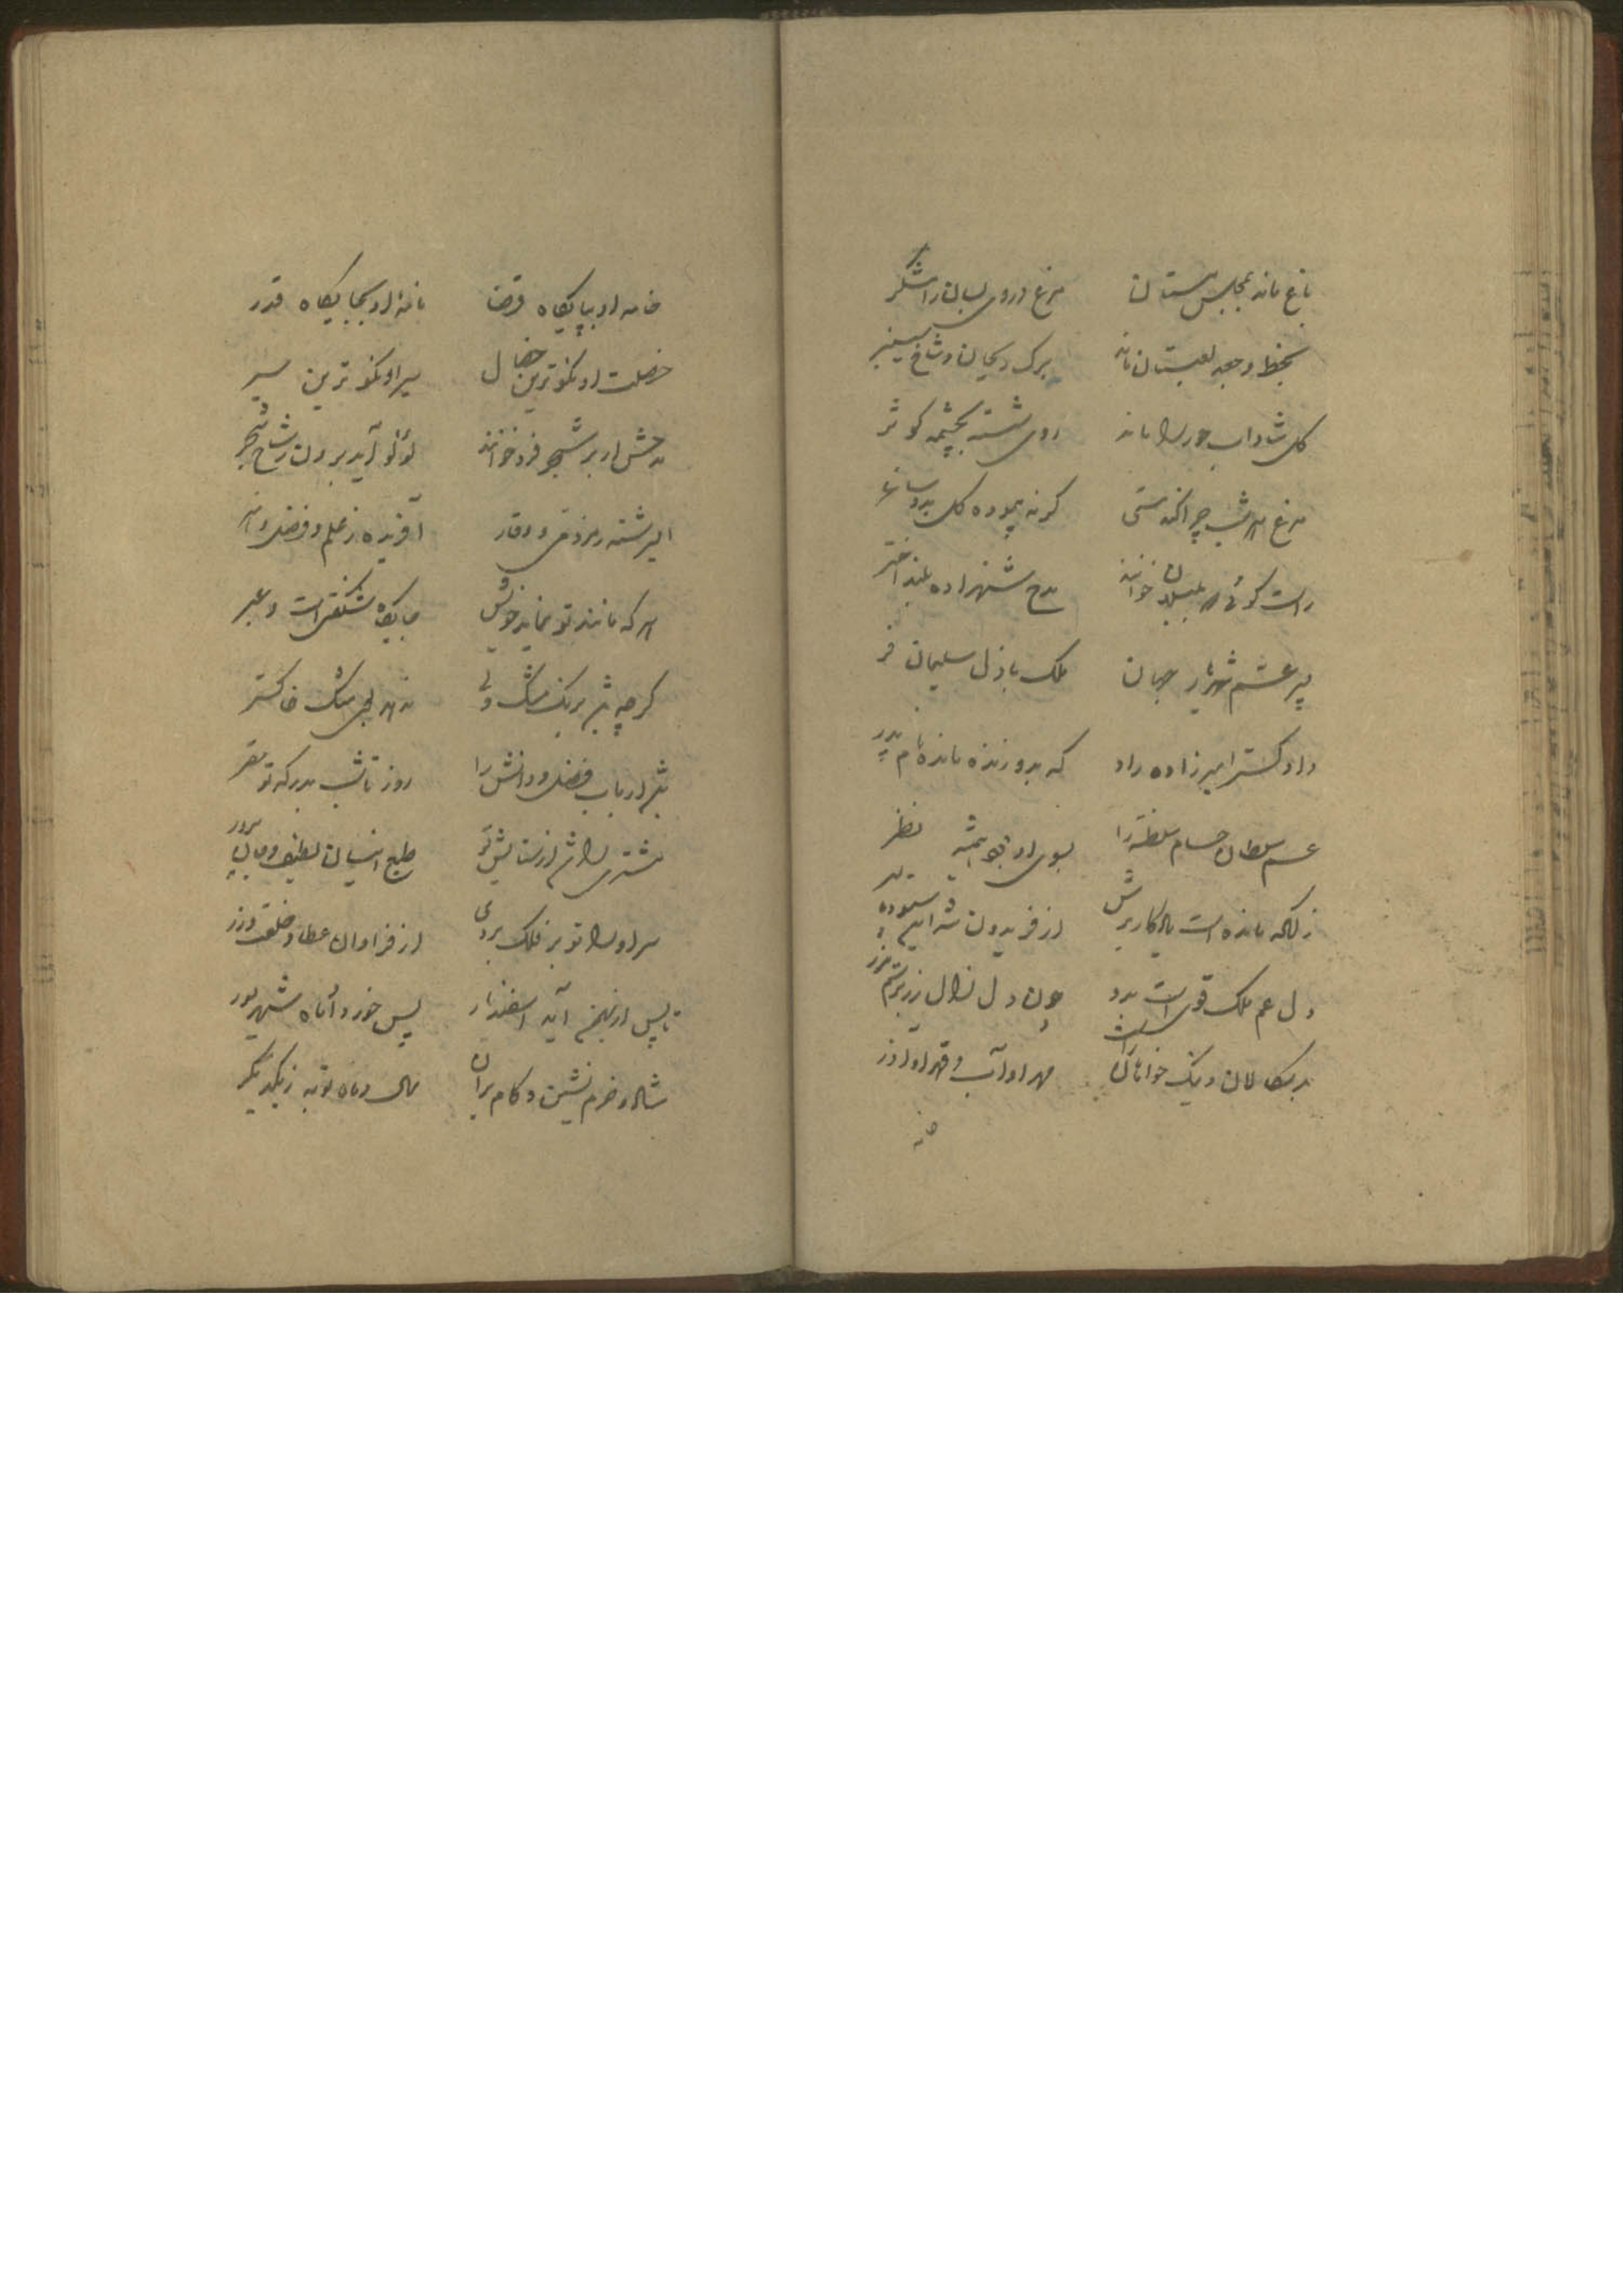 باغ ماند بمجلس مستان مرغ در وی بسان رامشگر
بخط و جعد لعبتان ماند برگ ریحان و شاخ سیسنبر
گل شاداب حور را ماند روی شسته بچشمه کوثر
مرغ هر شب چرا کند مستی گر نه پیموده گل بدو ساغر
راست گوئی که بلبلان خوانند مدح شهزاده بلند اختر
پور عم شهریار جهان ملک باذل سلیمان فر
دادگستر امیرزاده راد که بدو زنده مانده نام پدر
عم سلطان حسام سلطنه را بسوی او بود همیشه نظر
زانکه مانده است یادگار برش از فریدون شه ابیه سیر
دل عم ملک قوی است بدو چون دل زال زر برستم زر
بدسگالان و نیک خواهان را مهر او آب و قهر او آذر
خامه او بپایگاه قضا نامه او بجایگاه قدر
خصلت او نکوترین خصال سیر او نکوترین سیر
مدحش ار بر شجر فرو خوانند لؤلؤ آید برون ز شاخ شجر
ای سرشته ز مردمی و وقار آفریده ز علم و فضل و هنر
هر که مانند تو نماید خویش جایگاه شگفتی است و عبر
گرچه باشد برنگ مشک ولی ندهد بوی مشک خاکستر
باشد ارباب فضل و دانش را روز تا شب بدرگه تو مقر
مشتری را باشد از ستایش تو طبع انسان لطیف و جان پرور
سر او را تو بر فلک بردی از فراوان عطا و خلعت و زر
تا پس از بهمن آید اسفندار پس خرداد ماه شهریور
شاد و خرم نشین و کام بران سال و ماه تو به ز یکدیگر